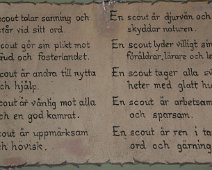 scout talar sanning och
står vid sitt ord.
scout gör sin plikt mot
Gud och fosterlandet.
scout är andra till nytta
och hjälp.
scout är vänlig mot alla
och en god kamrat.
scout är uppmärksam
och hövisk.
En scout är djurvän och
skyddar naturen.
En scout lyder villigt sina
föräldrar, lärare och le
En scout tager alla svå
heter med glatt hu
En scout är arbetsam
och sparsam.
En scout är ren i ta
ord och gärning